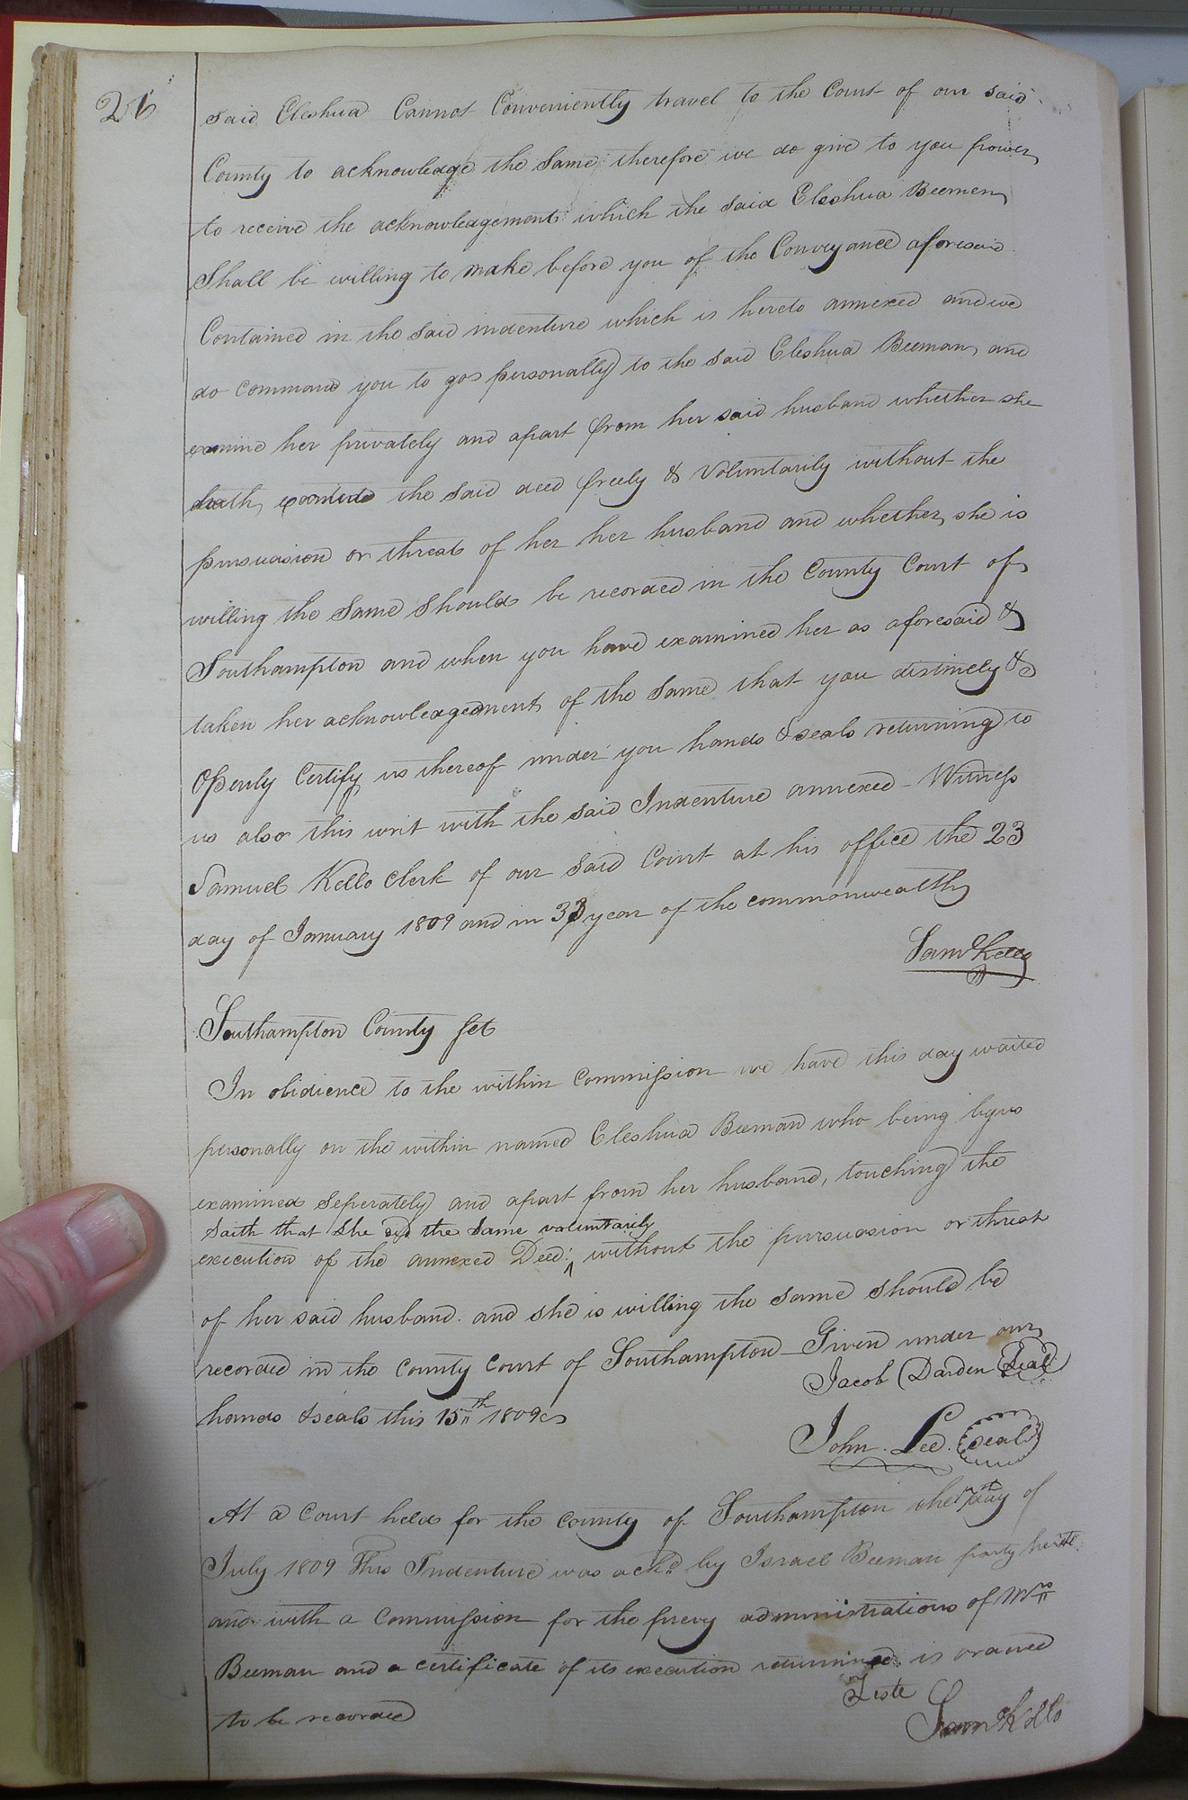 26
said Eleshua Cannot Conveniently travel to the Court of our said
County to acknowledge the Same therefore we do give to you power
to receive the acknowledgement which the said Eleshua Beeman
Shall be willing to make before you of the Conveyance aforesaid
Contained in the said indenture which is hereto annexed and we
do command you to go personally to the said Eleshua Beeman and
examine her privately and apart from her said husband whether she
doth execute the said deed freely & Voluntarily without the
persuasion or threats of her her husband and whether she is
willing the Same Should be recorded in the County Court of
Southampton and when you have examined her as aforesaid &
taken her acknowledgement of the Same that you distinctly &
Openly Certify us thereof under you hands & seals returning to
us also this writ with the said Indenture annexed - Witness
Samuel Kello clerk of our said Court at his office the 23
day of January 1809 and in 33 year of the commonwealth
Saml Kello
Southampton County Sct
In obidience to the within Commission we have this day waited
personally on the within named Eleshua Beeman who being by us
examined seperately and apart from her husband, touching the
Saith that she did the same voluntarily
execution of the annexed Deed ^ without the pursuasion or threat
of her said husband and she is willing the same should be
recorded in the county court of Southampton - Given under our
Jacob Darden Seal
hands & seals this 15th 1809
John Lee. Seal
At a Court held for the county of Southampton the day of
July 1809 This Indenture was ackd by Israel Beeman party
and with a Commission for the privy administrations of Mrs
Beeman and a certificate of its execution returnined is ordered
Teste
to be recorded
Saml Kello